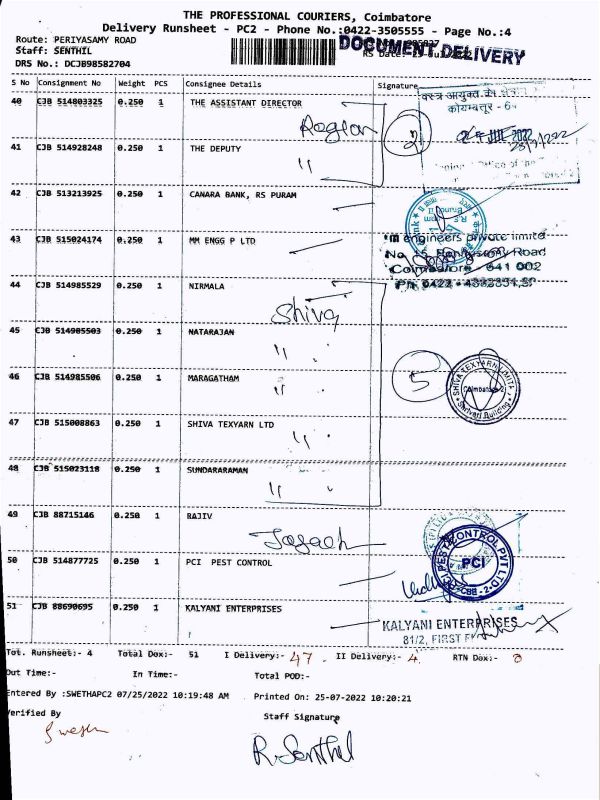 THE PROFESSIONAL COURIERS, Coimbatore
Delivery Runsheet - PC2 - Phone No.:0422-3505555 - Page No.:4
Route: PERIYASAMY ROAD
DOCUMENT DELIVERY
Staff: SENTHIL
DRS No.: DCJB98582704
S No Consignment No Weight PCS Consignee Details Signature
40 CJB 514803325 0.250 1 THE ASSISTANT DIRECTOR
2
41 CJB 514928248 0.250 1 THE DEPUTY
〃
42 CJB 513213925 0.250 1 CANARA BANK, RS PURAM
43 CJB 515024174 0.250 1 MM ENGG P LTD
engineers private limited
Road
641 002
44 CJB 514985529 0.250 1 NIRMALA
Shiva
45 CJB 514985503 0.250 1 NATARAJAN
〃
46 CJB 514985506 0.250 1 MARAGATHAM
〃
5
SHIVA TEXYARN LIMITED
Coimbatore-2
Building
47 CJB 515008863 0.250 1 SHIVA TEXYARN LTD
〃
48 CJB 515023118 0.250 1 SUNDARARAMAN
〃
49 CJB 88715146 0.250 1 RAJIV
50 CJB 514877725 0.250 1 PCI PEST CONTROL
PEST CONTROL PVT LTD
PCI
CBB - 2
51 CJB 88690695 0.250 1 KALYANI ENTERPRISES
KALYANI ENTERPRISES
81/2, FIRST
Tot. Runsheet:- 4 Total Dox:- 51 I Delivery:- 47. II Delivery:- 4. RTN Dox:- 0
Out Time:- In Time:- Total POD:-
Entered By :SWETHAPC2 07/25/2022 10:19:48 AM Printed On: 25-07-2022 10:20:21
Verified By Staff Signature
R. Senthil